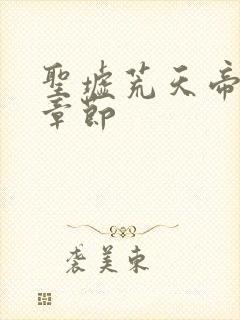 聖墟荒天帝
章節
袭美東